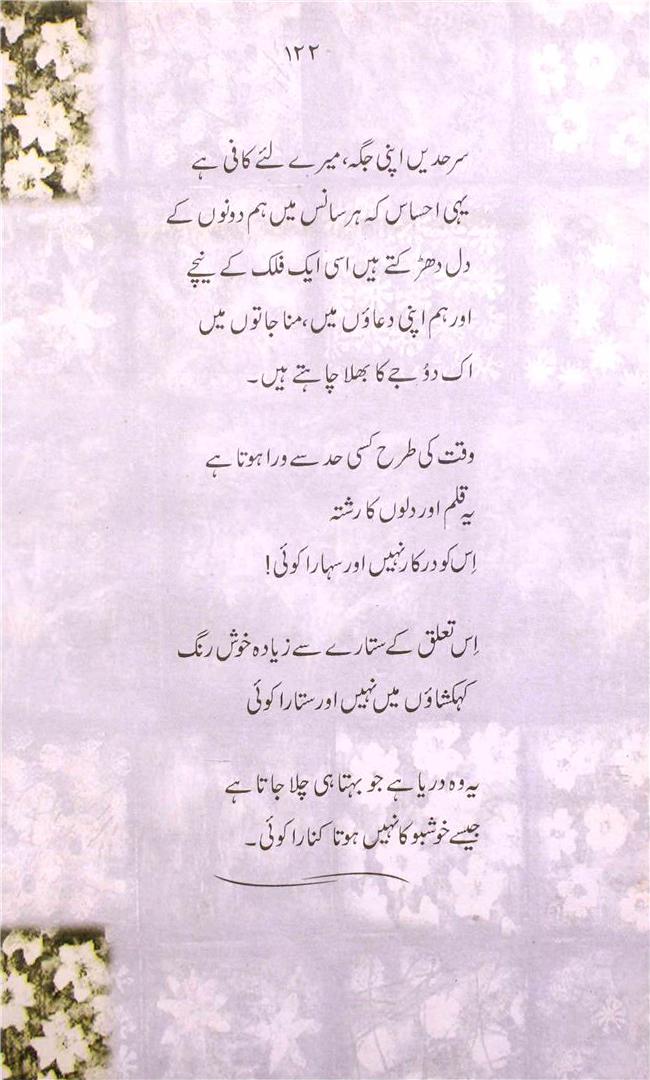 ۱۲۲
سرحدیں اپنی جگہ، میرے لئے کافی ہے
یہی احساس کہ ہر سانس میں ہم دونوں کے
دل دھڑکتے ہیں اسی ایک فلک کے نیچے
اور ہم اپنی دعاؤں میں، مناجاتوں میں
اک دوُجے کا بھلا چاہتے ہیں۔
وقت کی طرح کسی حد سے ورا ہوتا ہے
یہ قلم اور دلوں کا رشتہ
اِس کو درکار نہیں اور سہارا کوئی!
اِس تعلق کے ستارے سے زیادہ خوش رنگ
کہکشاؤں میں نہیں اور ستارا کوئی
یہ وہ دریا ہے جو بہتا ہی چلا جاتا ہے
جیسے خوشبو کا نہیں ہوتا کنارا کوئی۔